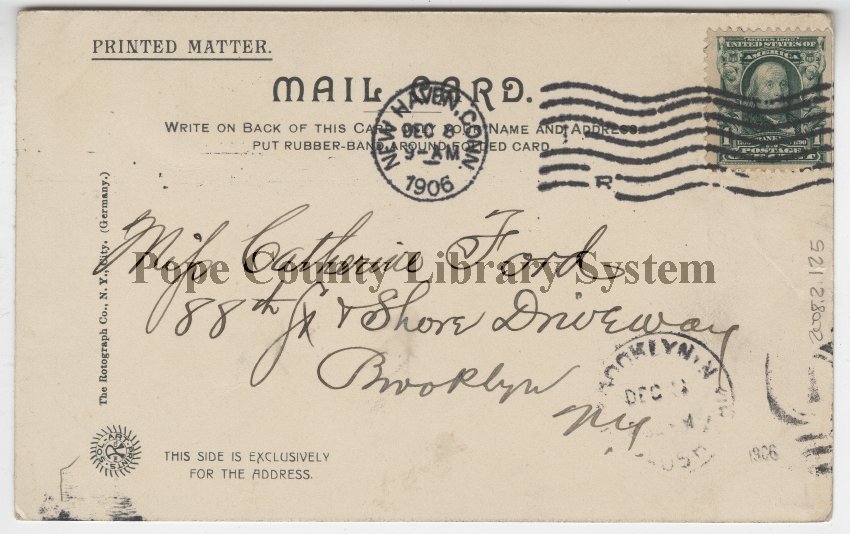 PRINTED MATTER.
MAIL CARD.
WRITE ON BACK OF THIS CARD ONLY YOUR NAME AND ADDRESS
PUT RUBBER-BAND AROUND FOLDED CARD
NEW HAVEN. CONN.
DEC 8
9-AM
1906
R
SERIES 1902
UNITED STATES OF
AMERICA
POSTAGE
The Rotograph Co., N. Y., City. (Germany.)
Miss Catherine Ford
Pope County Library System
88th St & Shore Driveway
Brooklyn
NY
BROOKLYN, N
DEC
1906
2008.2.125
SOL-ART PRINTS
THIS SIDE IS EXCLUSIVELY
FOR THE ADDRESS.